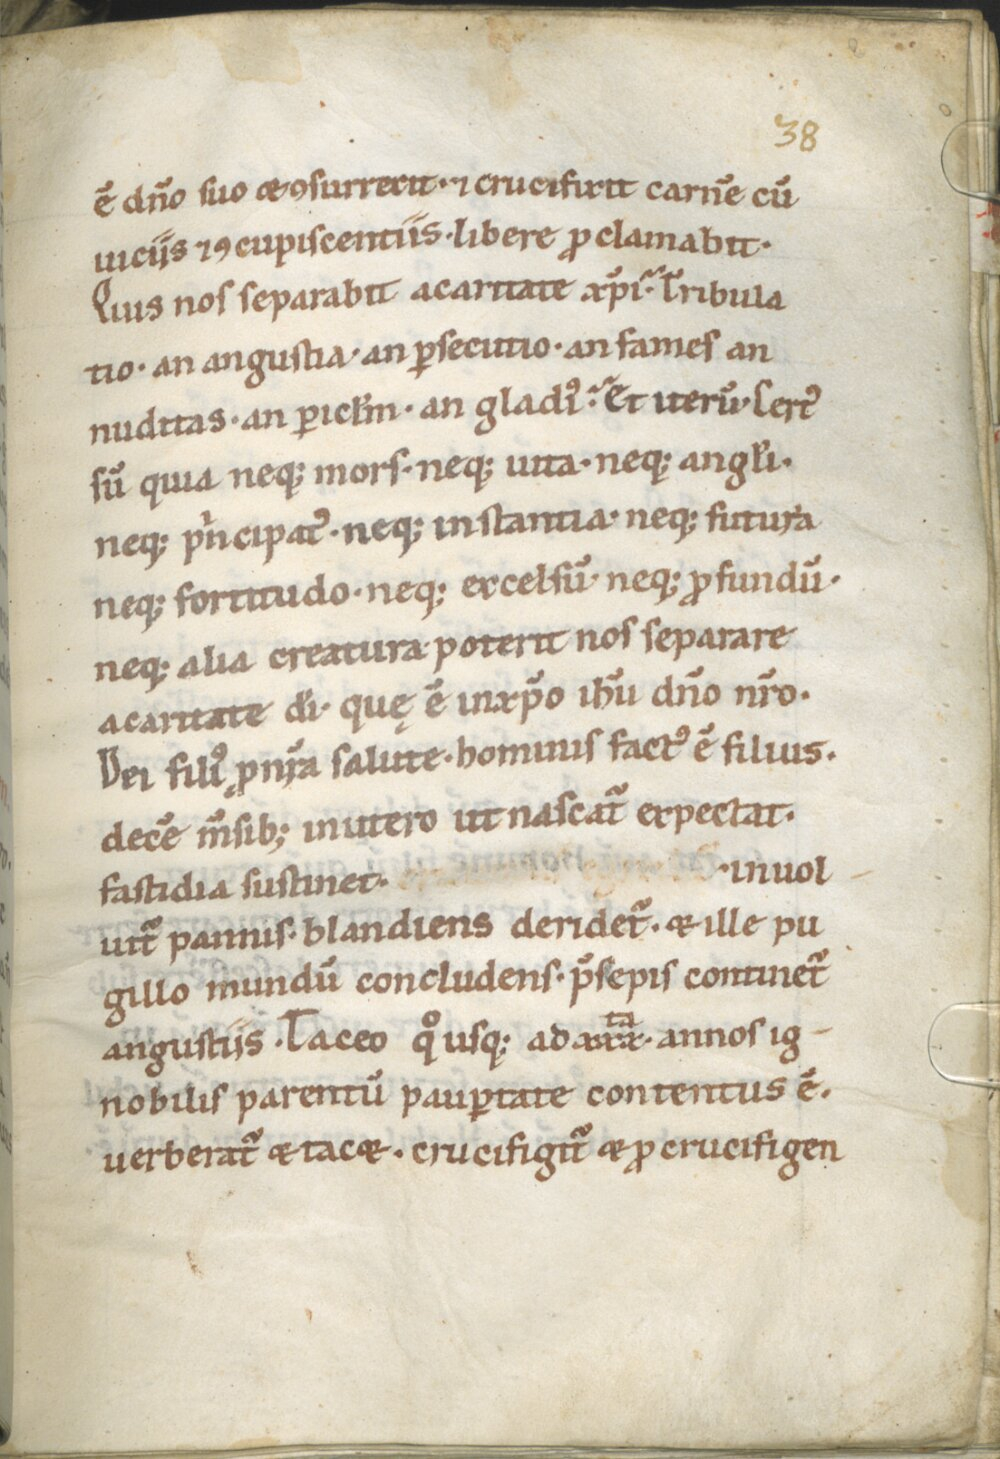 38
ē dn̄o suo & ꝯsurrexit· ⁊ crucifixit carnē cū
uiciis ⁊ ꝯcupiscentiis· libere ꝓclamabit·
Quis nos separabit acaritate xp̄i· Tribula
tio· an angustia· an ꝑsecutio· an fames an
nuditas· an ꝑicl̄m· an gladi᷒· Et iterū· Cert᷒
sū quia neq; mors· neq; uita· neq; angl̄i·
neq; pͥncipat᷒· neq; instantia· neq; futura
neq; fortitudo· neq; excelsū· neq; ꝓfundū·
neq; alia creatura poterit nos separare
acaritate dī· quę ē inxp̄o ih̄u dn̄o nr̄o·
Dei fili᷒ ꝓnr̄a salute· hominis fact᷒ ē filius·
decē m̄sib; inutero ut nascat᷑ expectat·
fastidia sustinet· ·inuol
uit᷑ pannis· blandiens deridet᷑· & ille pu
gillo mundū concludens· p̄sepis continet᷑
angustiis· Taceo qͦ usq; ad xxx ta· annos ig-
nobilis parentū pauꝑtate contentus ē·
uerberat᷑ & tac&· crucifigit᷑ & ꝓcrucifigen